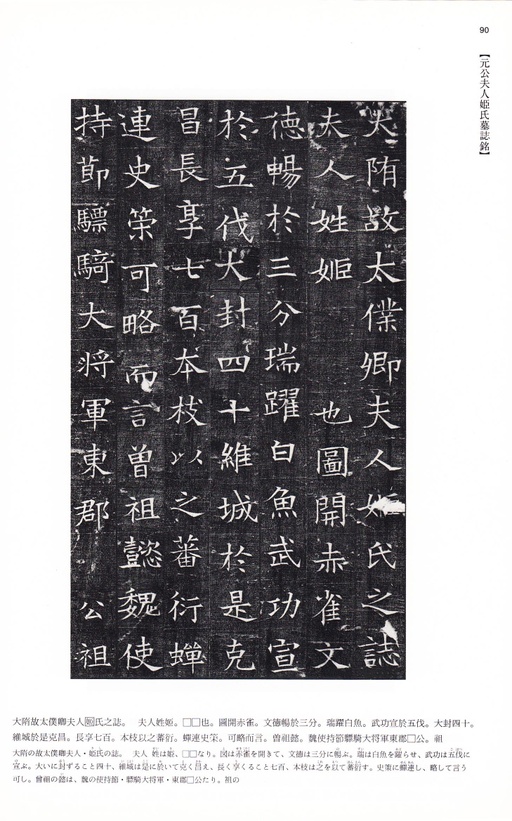 90
【元公夫人姫氏墓誌銘】
大隋故太僕卿夫人姬氏之誌
夫人姓姬 也圖開赤雀文
德暢於三分瑞躍白魚武功宣
於五伐大封四十維城於是克
昌長享七百本枝以之蕃衍蟬
連史策可略而言曾祖懿魏使
持節驃騎大將軍東郡 公祖
大隋故太僕卿夫人姬氏之誌。 夫人姓姬。□□也。圖開赤雀。文德暢於三分。瑞躍白魚。武功宣於五伐。大封四十。
維城於是克昌。長享七百。本枝以之蕃衍。蟬連史策。可略而言。曾祖懿。魏使持節驃騎大將軍東郡□公。祖
大隋の故太僕卿夫人・姫氏の誌。 夫人 姓は姫、□□なり。図は赤雀を開きて、文徳は三分に暢ぶ。瑞は白魚を躍らせ、武功は五伐に
宣ぶ。大いに封ずること四十、維城は是に於いて克く昌え、長く享くること七百、本枝は之を以て蕃衍す。史策に蟬連し、略して言う
可し。曾祖の懿は、魏の使持節・驃騎大将軍・東郡□公たり。祖の